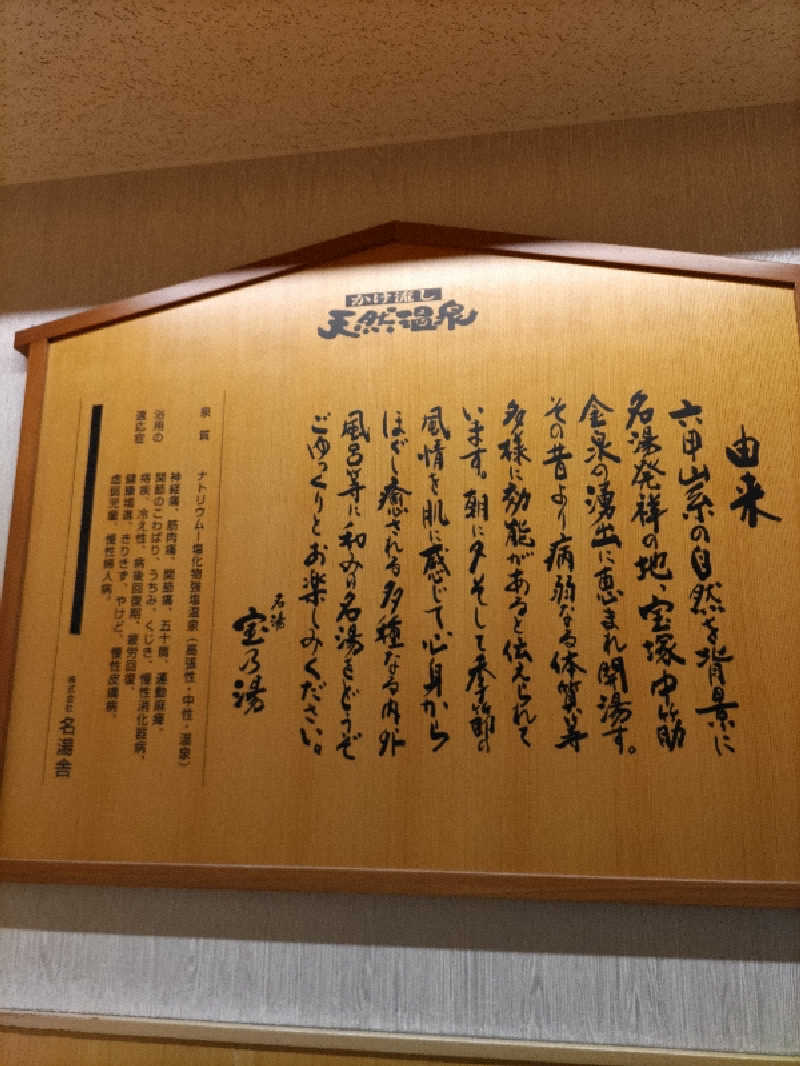 かけ流し
天然温泉
由来
六甲山系の自然を背景に
名湯発祥の地、宝塚中筋
金泉の湧出に恵まれ開湯す。
その昔より病弱なる体質等
多様に効能があると伝えられて
います。朝に夕そして季節の
風情を肌に感じて心身から
ほぐし癒される多種なる内外
風呂等に和みの名湯をどうぞ
ごゆっくりとお楽しみください。
名湯
宝乃湯
泉質 ナトリウム－塩化物強塩温泉（高張性・中性・温泉）
浴用の
適応症
神経痛、筋肉痛、関節痛、五十肩、運動麻痺、
関節のこわばり、うちみ、くじき、慢性消化器病、
痔疾、冷え性、病後回復期、疲労回復、
健康増進、きりきず、やけど、慢性皮膚病、
虚弱児童、慢性婦人病。
株式会社 名湯舎